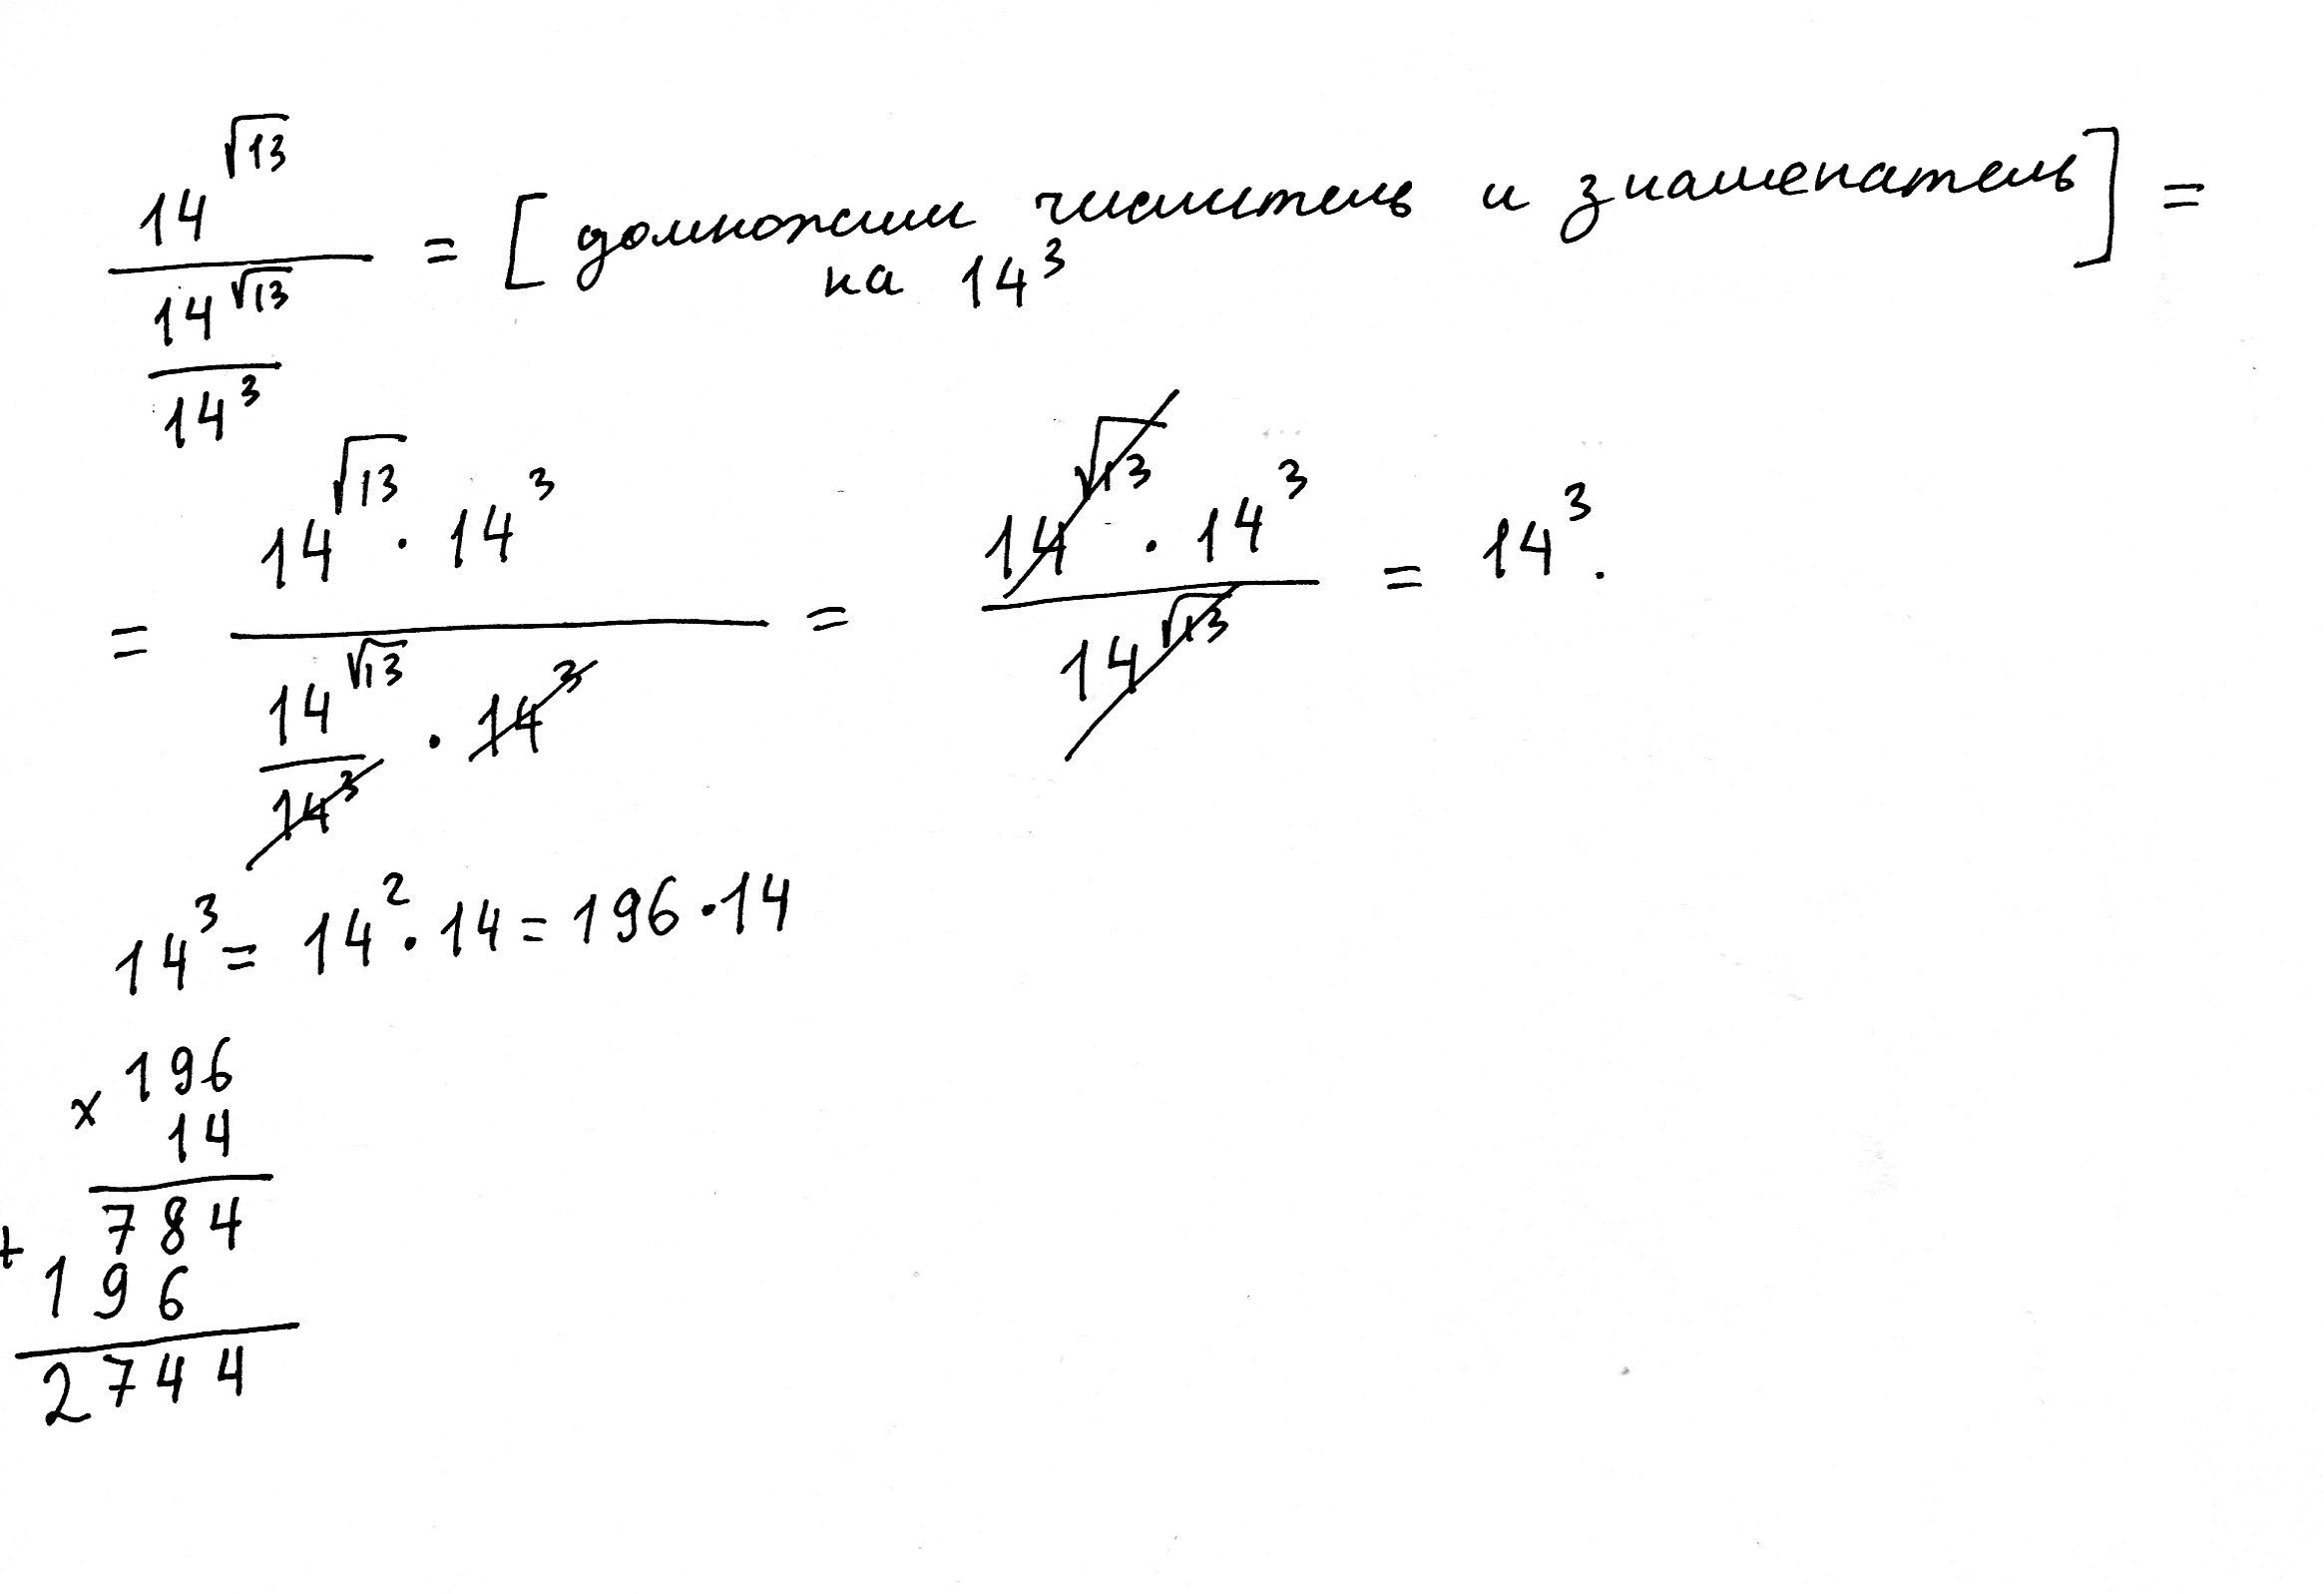 14^√13 / (14^√13 / 14^3) = [домножим числитель и знаменатель] =
на 14^3
= (14^√13 · 14^3) / (14^√13 / 14^3 · 14^3) = (14^√13 · 14^3) / 14^√13 = 14^3.
14^3 = 14^2 · 14 = 196 · 14
x 196
14
784
+
196
2744